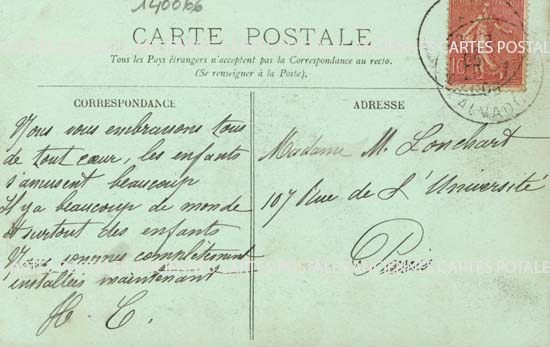 140066
CARTE POSTALE
Tous les Pays étrangers n'acceptent pas la Correspondance au recto.
(Se renseigner à la Poste).
CORRESPONDANCE
Nous vous embrassons tous
de tout cœur, les enfants
s'amusent beaucoup
Il y a beaucoup de monde
et surtout des enfants
Nous sommes complètement
installés maintenant
H. C.
ADRESSE
Madame M. Lonchart
107 Rue de L'Université
Paris
10
CALVADOS
ANCIENNES CARTES POSTALES